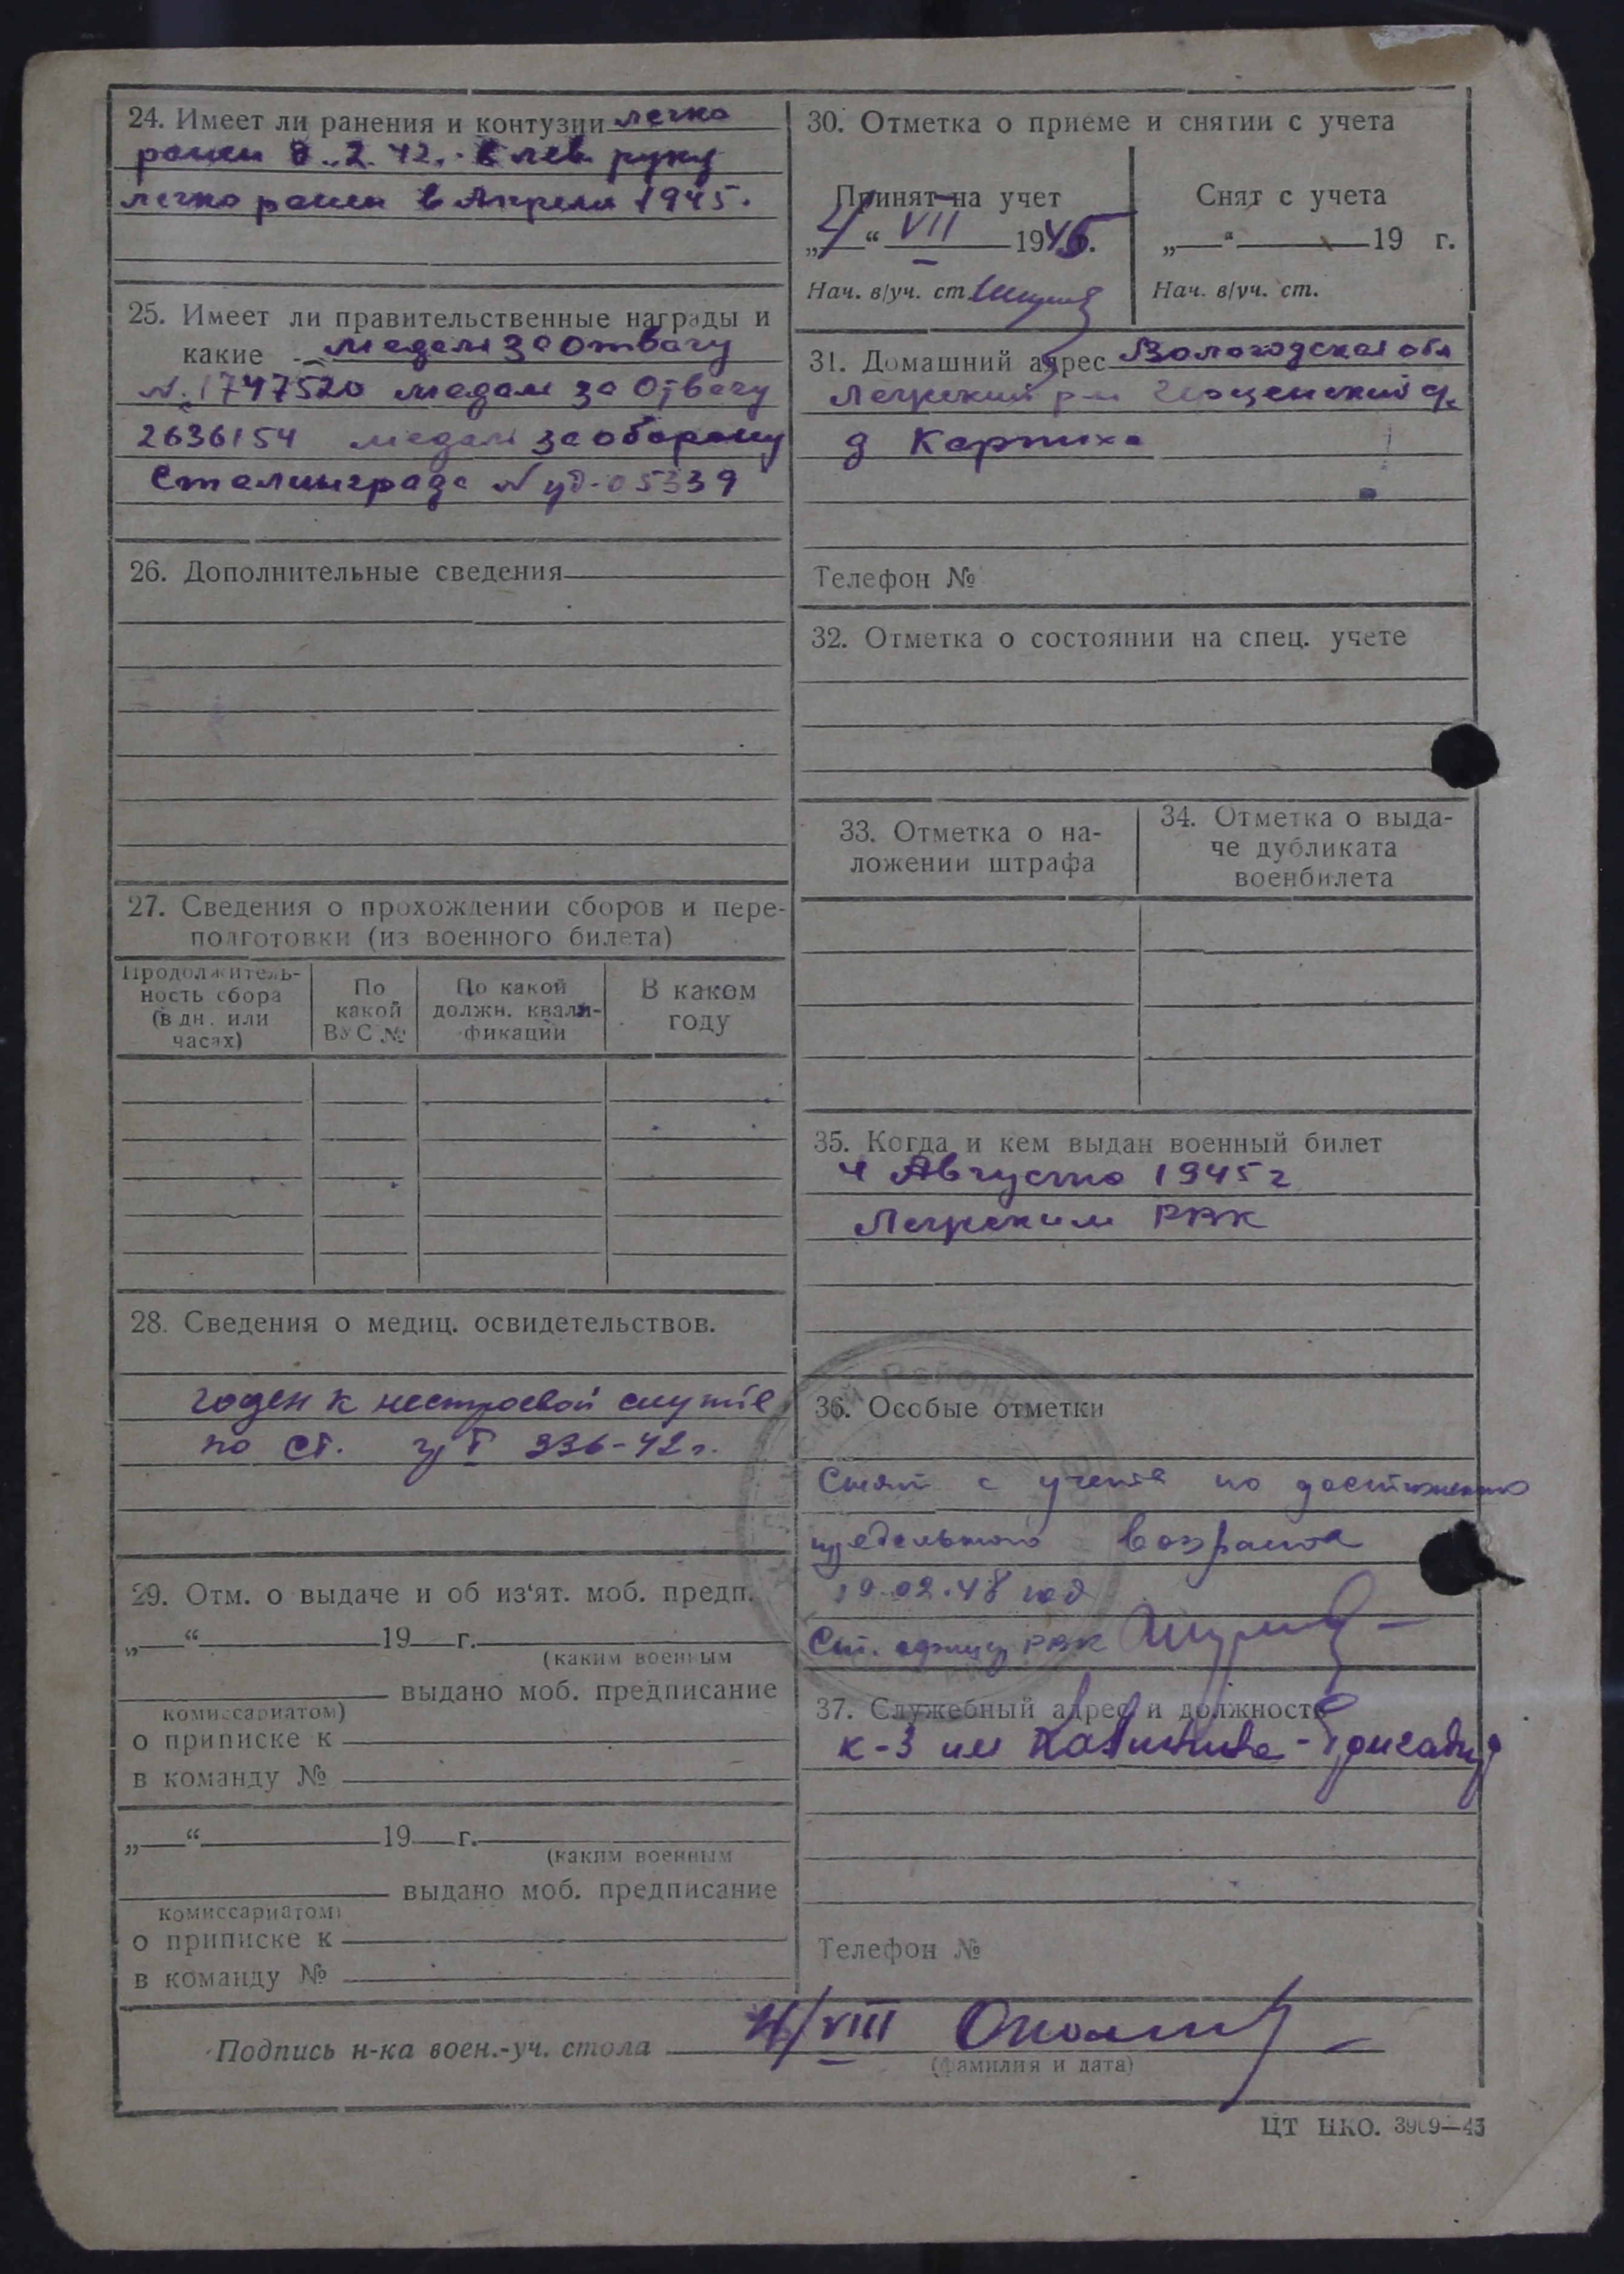 24. Имеет ли ранения и контузии легко
ранен 8.2.42. в лев. руку
легко ранен в Апреле 1945.
25. Имеет ли правительственные награды и
какие медаль за отвагу
№ 1747520 медаль за Отвагу
2636154 медаль за оборону
Сталинграда № уд-05339
26. Дополнительные сведения
27. Сведения о прохождении сборов и пере-
подготовки (из военного билета)
Продолжитель-
ность сбора
(в дн. или
часах)
По
какой
ВУС №
По какой
должн. квали-
фикации
В каком
году
28. Сведения о медиц. освидетельствов.
годен к нестроевой службе
по ст. 336-42г.
29. Отм. о выдаче и об из'ят. моб. предп.
„—“ 19 г.
(каким военным
выдано моб. предписание
комиссариатом)
о приписке к
в команду №
„—“ 19 г.
(каким военным
выдано моб. предписание
комиссариатом)
о приписке к
в команду №
30. Отметка о приеме и снятии с учета
Принят на учет
„4“ VII 1945г.
Нач. в/уч. ст.
Снят с учета
„—“ 19 г.
Нач. в/уч. ст.
31. Домашний адрес Вологодская обл
р-н
д Карпиха
Телефон №
32. Отметка о состоянии на спец. учете
33. Отметка о на-
ложении штрафа
34. Отметка о выда-
че дубликата
военбилета
35. Когда и кем выдан военный билет
4 Августа 1945 г
РВК
36. Особые отметки
Снят с учета по достижению
предельного возраста
19.02.48 год
Ст. офицер РВК
37. Служебный адрес и должность
к-з им Калинина - бригадир
Телефон №
Подпись н-ка воен.-уч. стола 4/VIII
(фамилия и дата)
ЦТ НКО. 3909—43